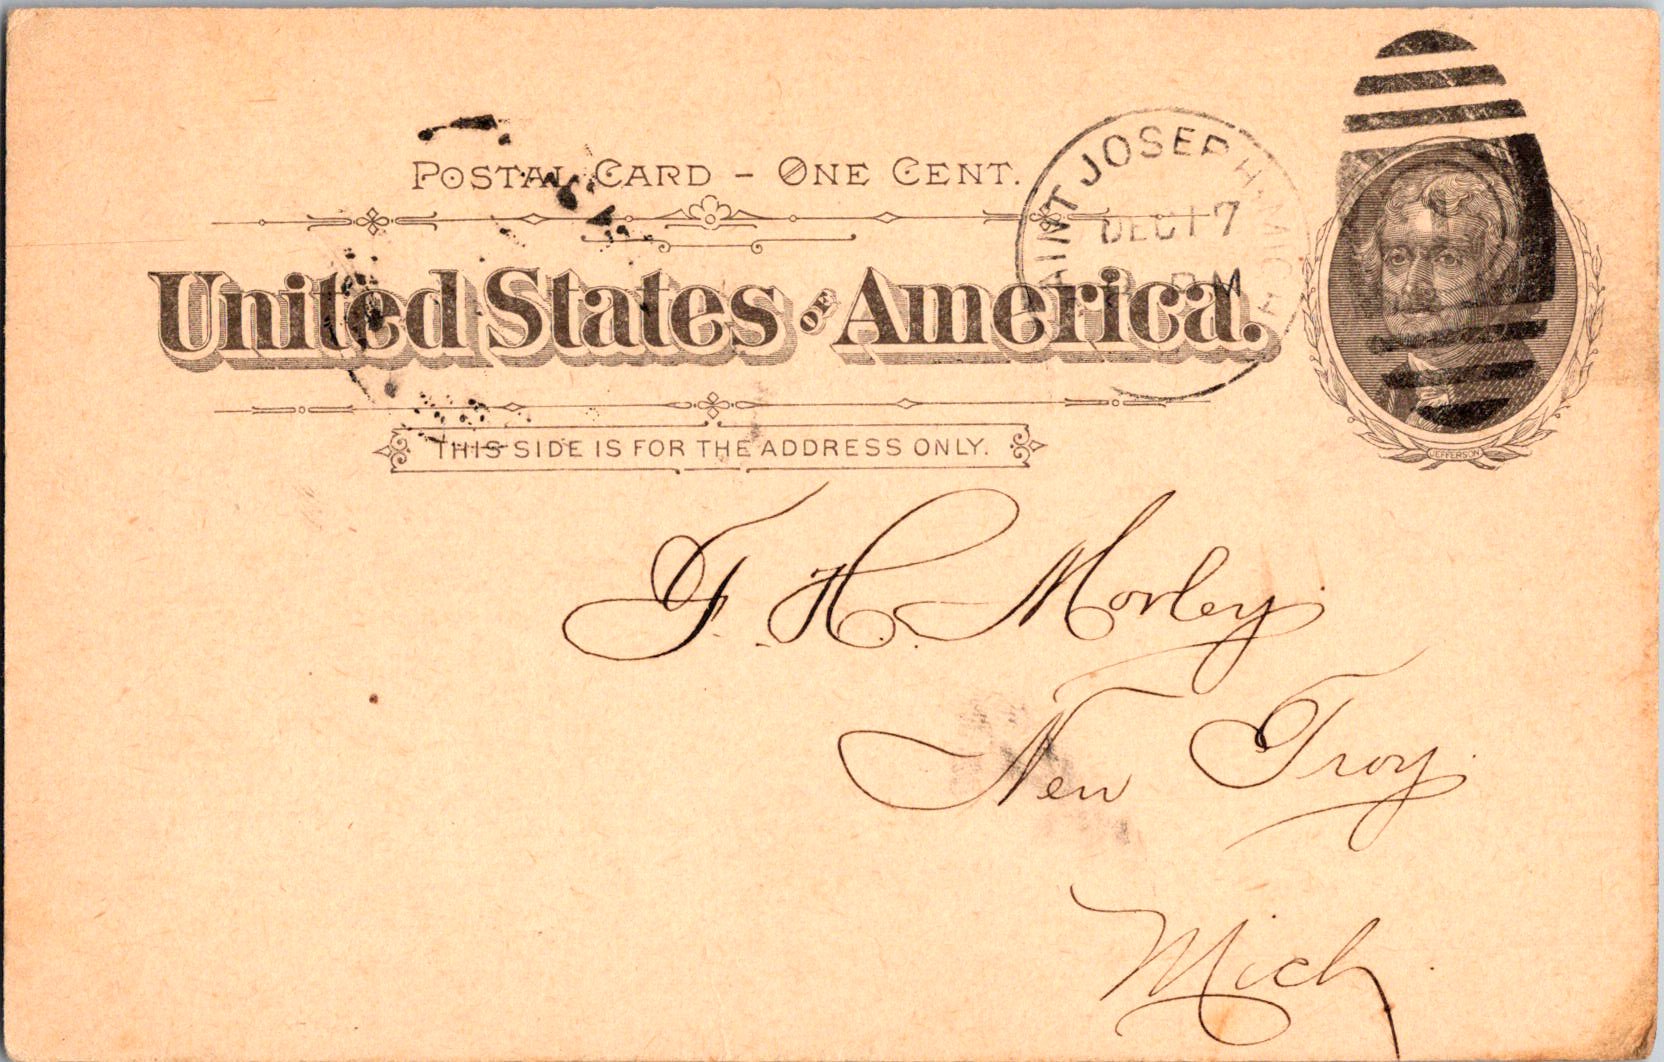 POSTAL CARD – ONE CENT.
SAINT JOSEPH. MICH
DEC 17
PM
United States OF America.
THIS SIDE IS FOR THE ADDRESS ONLY.
JEFFERSON
F. H. Morley
New Troy
Mich